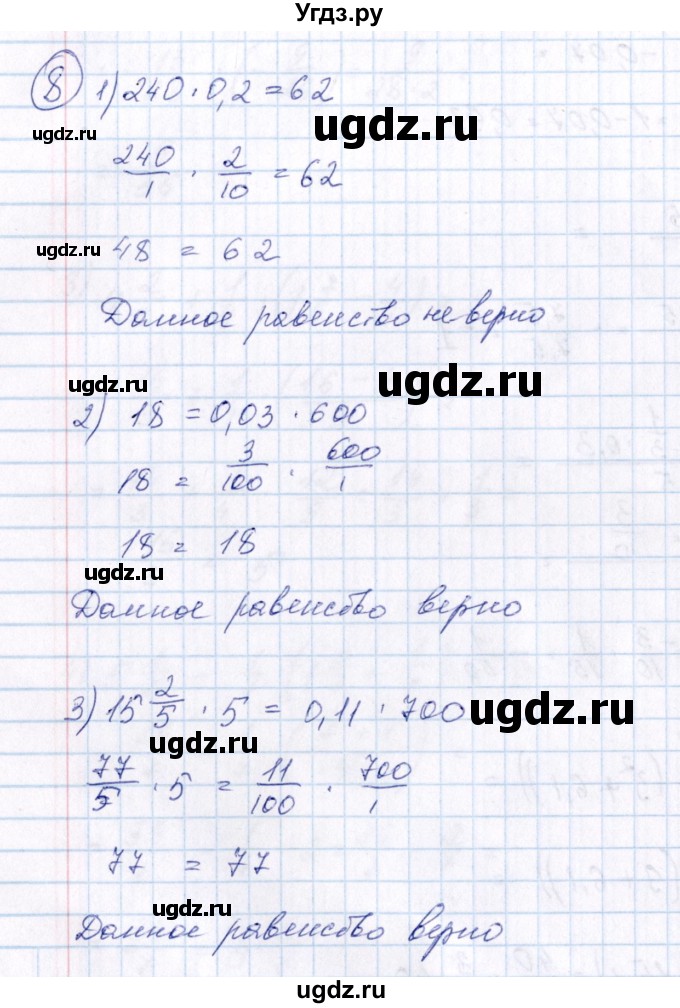 Угдз.ру
8 1) 240 · 0,2 = 62
ugdz.ru
ugdz.ru
240/1 · 2/10 = 62
ugdz.ru
48 = 62
ugdz.ru
Данное равенство не верно
ugdz.ru
ugdz.ru
2) 18 = 0,03 · 600
18 = 3/100 · 600/1
18 = 18
ugdz.ru
Данное равенство верно
3) 15 2/5 · 5 = 0,11 · 700
ugdz.ru
ugdz.ru
77/5 · 5 = 11/100 · 700/1
77 = 77
ugdz.ru
Данное равенство верно
ugdz.ru